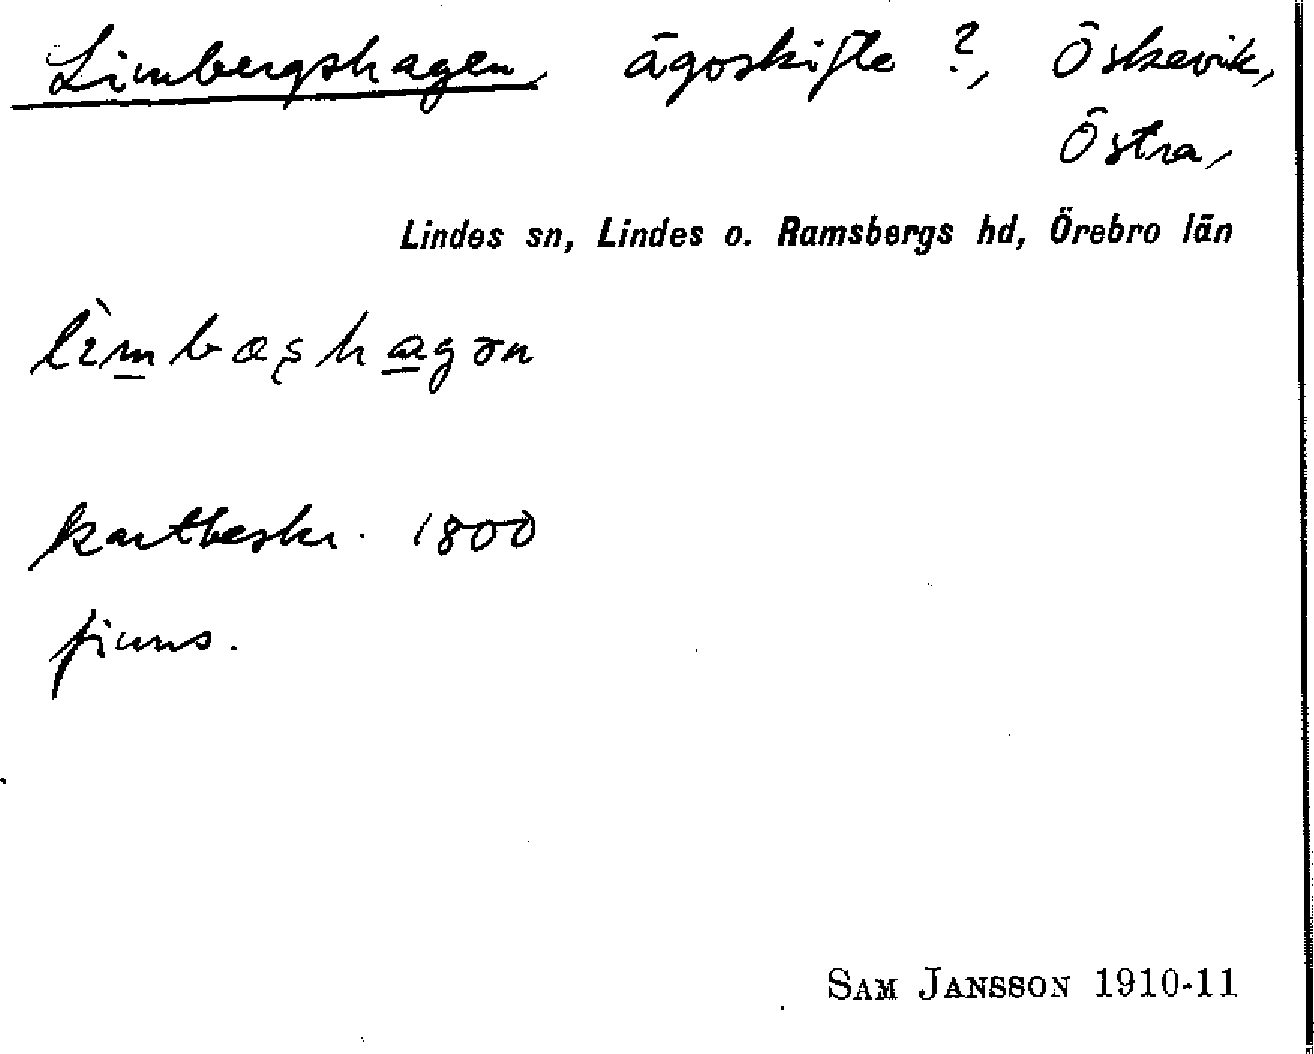 Limbergshagen, ägoskifte ?, Öskevik,
Östra,
Lindes sn, Lindes o. Ramsbergs hd, Örebro län
lìmbæʂhagən
kartbeskr. 1800
finns.
SAM JANSSON 1910-11